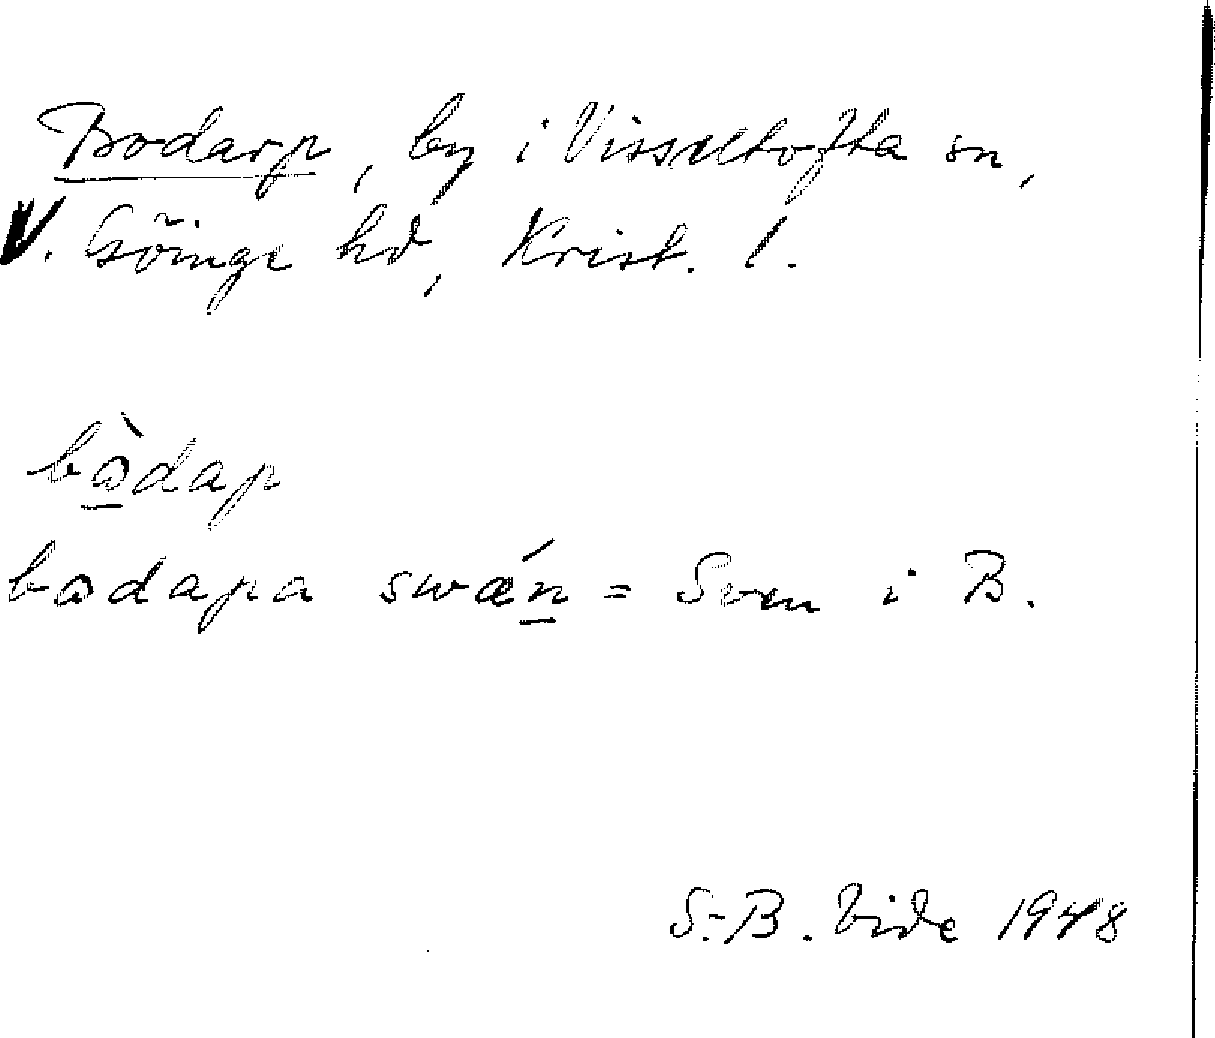 Bodarp, by i Visseltofta sn,
V. Göinge hd, Krist. l.
bòdap
bodapa swæ̃́n = Sven i B.
S.-B. Vide 1948